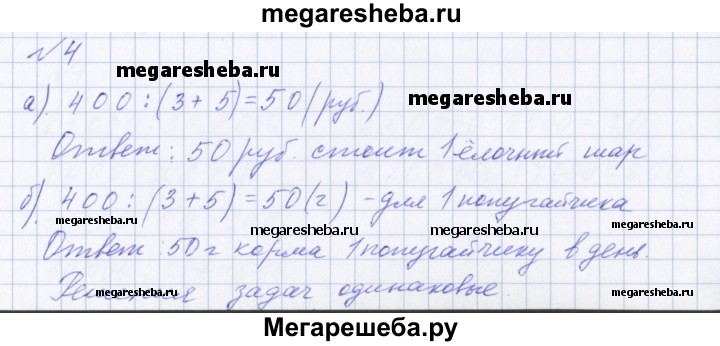 megaresheba.ru
№4
megaresheba.ru
а). 400 : (3 + 5) = 50 (руб.)
megaresheba.ru
Ответ: 50 руб. стоит 1 ёлочный шар
б). 400 : (3 + 5) = 50 (г) - для 1 попугайчика
megaresheba.ru
megaresheba.ru
Ответ: 50 г корма 1 попугайчику в день.
megaresheba.ru
Решения задач одинаковые.
megaresheba.ru
Мегарешеба.ру